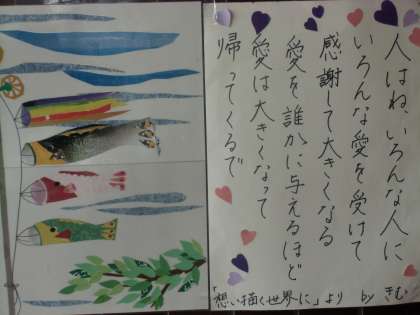 人はね、いろんな人に
いろんな愛を受けて
感謝して大きくなる
愛を誰かに与えるほど
愛は大きくなって
帰ってくるで
「想い描く世界に」より by きむ